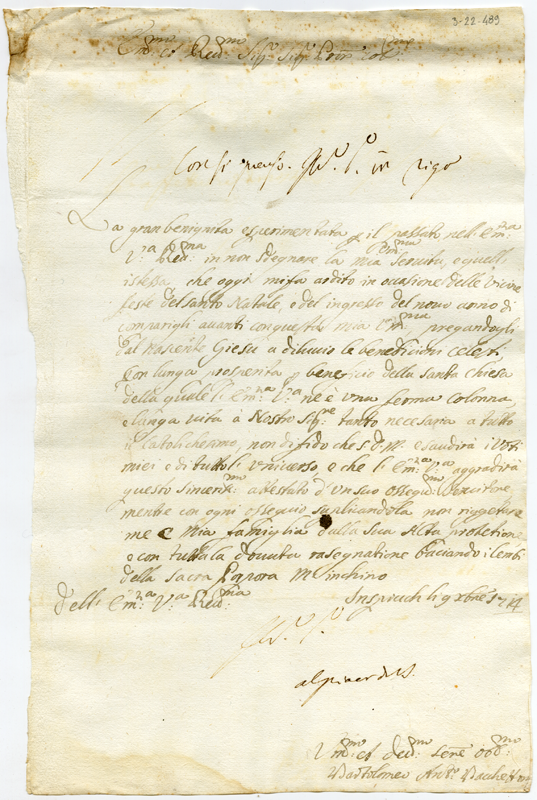 3-22-489
Em:mo et Red:mo Sig:r Sig:r Pron Col:mo
in rigo
La gran benignità esperimentata p il passato nell Em:za
V:a Red:ma in non sdegnare la mia Servitù, e quella
istessa che oggi mi fa ardito in ocasione delle vicine
feste del santo Natale, e del ingresso del novo anno di
comparigli avanti con questa mia Em:ma pregandogli
dal Nascente Giesù a diluvio le benedicioni celesti
con lunga prosperità p beneficio della santa chiesa
della quale l'Em:za V:a ne è una ferma colonna
e lunga vita à Nostro Sig:re tanto necesaria a tutto
il Catolichesmo, non difido che S. D. M. esaudirà i voti
miei e di tutto l'universo, e che l'Em:za V:a aggradirà
questo sincerii:mo attestato d'un suo osseqü:mo Servitore
mente con ogni ossequio suplicandola non riggetare
me e mia famiglia dalla sua Alta protetione
e con tutta la dovuta rasegnatione baciando i lembi
della Sacra Porpora M'inchino
Dell' Em:za V:a Red:ma
Inspruch li 9 xbre 1714
V:mo et dev:mo Serre obb:mo
Bartolomeo Ant:o